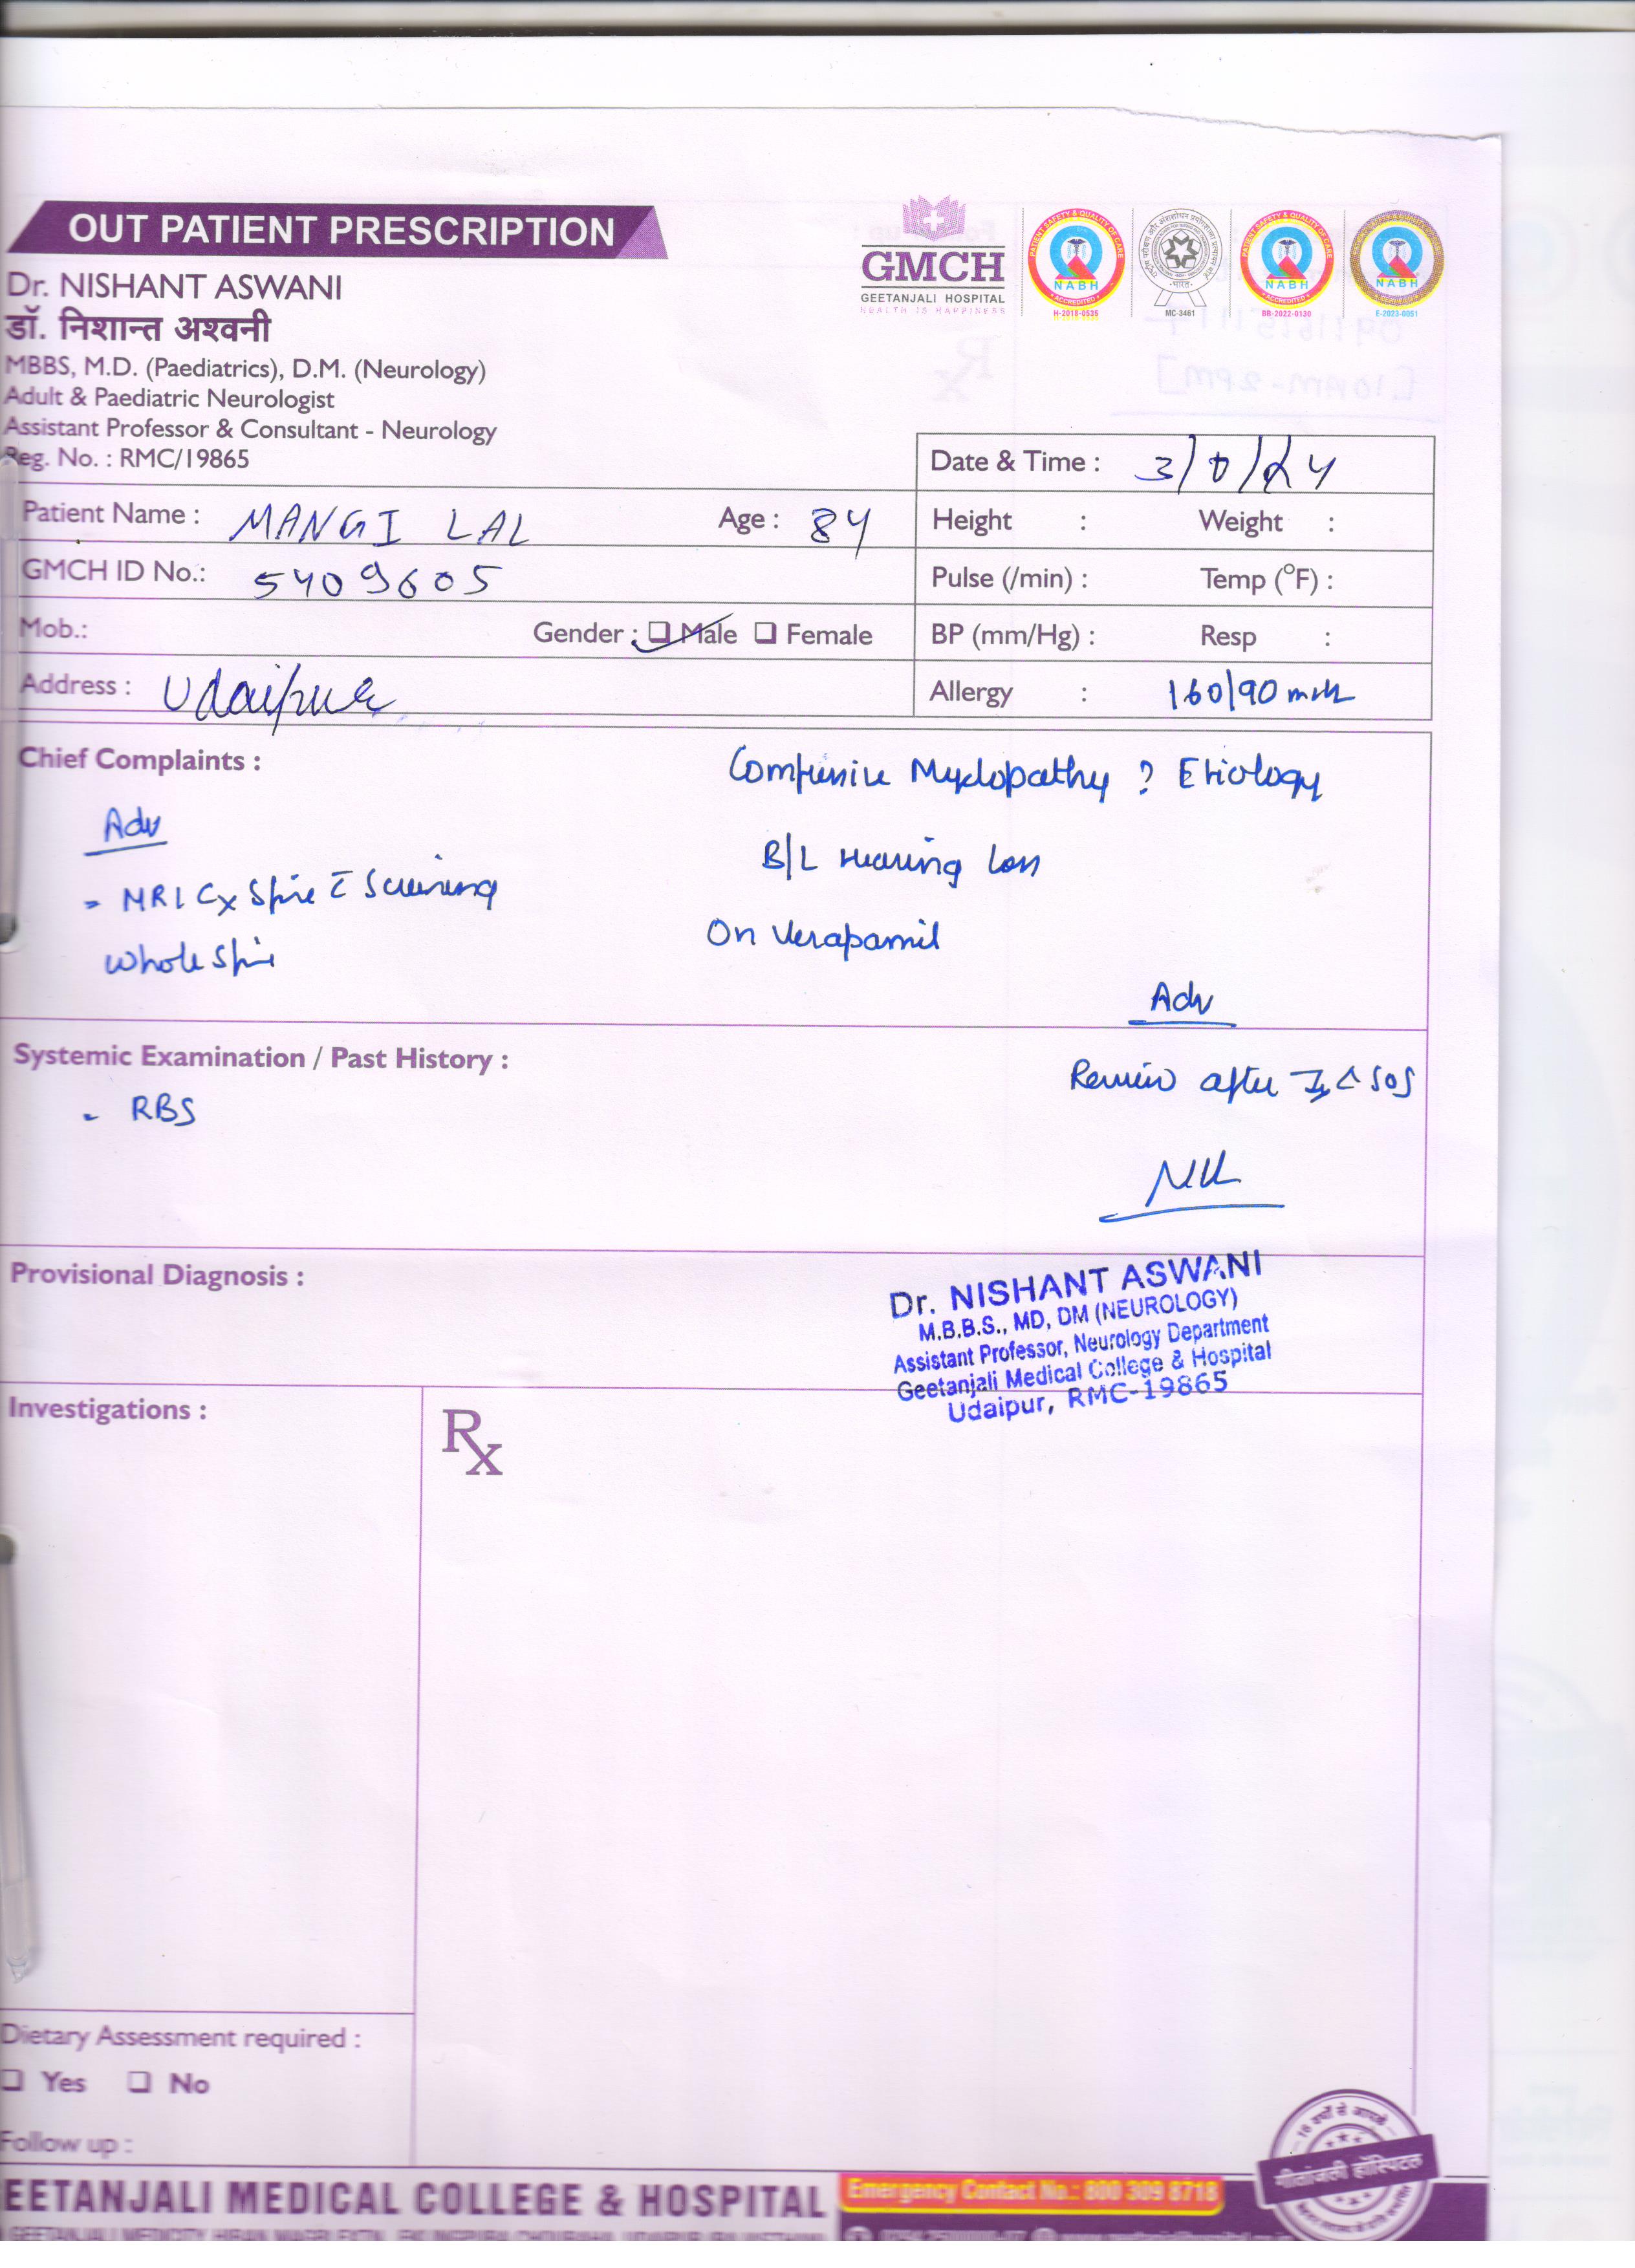 OUT PATIENT PRESCRIPTION
GMCH
GEETANJALI HOSPITAL
HEALTH IS HAPPINESS
PATIENT SAFETY & QUALITY OF CARE
NABH
ACCREDITED
H-2018-0535
भारत
MC-3461
NABH
ACCREDITED
BB-2022-0130
NABH
E-2023-0051
Dr. NISHANT ASWANI
डॉ. निशान्त अश्वनी
MBBS, M.D. (Paediatrics), D.M. (Neurology)
Adult & Paediatric Neurologist
Assistant Professor & Consultant - Neurology
Reg. No. : RMC/19865
Date & Time :
Patient Name : MANGI LAL Age : 84
Height : Weight :
GMCH ID No.: 5409605
Pulse (/min) : Temp (°F) :
Mob.: Gender : Male Female
BP (mm/Hg) : Resp :
Address : Udaipur
Allergy : 160/90
Chief Complaints :
Compressive Myelopathy ? Etiology
Adv
B/L Hearing Loss
- MRI Cx Spine c̄ Screening
whole Spine
On Verapamil
Adv
Systemic Examination / Past History :
Review after SOS
- RBS
Provisional Diagnosis :
Dr. NISHANT ASWANI
M.B.B.S., MD, DM (NEUROLOGY)
Assistant Professor, Neurology Department
Geetanjali Medical College & Hospital
Udaipur, RMC-19865
Investigations :
Rx
Dietary Assessment required :
Yes No
Follow up :
गीतांजली हॉस्पिटल
EETANJALI MEDICAL COLLEGE & HOSPITAL
Emergency Contact No.: 800 309 8718